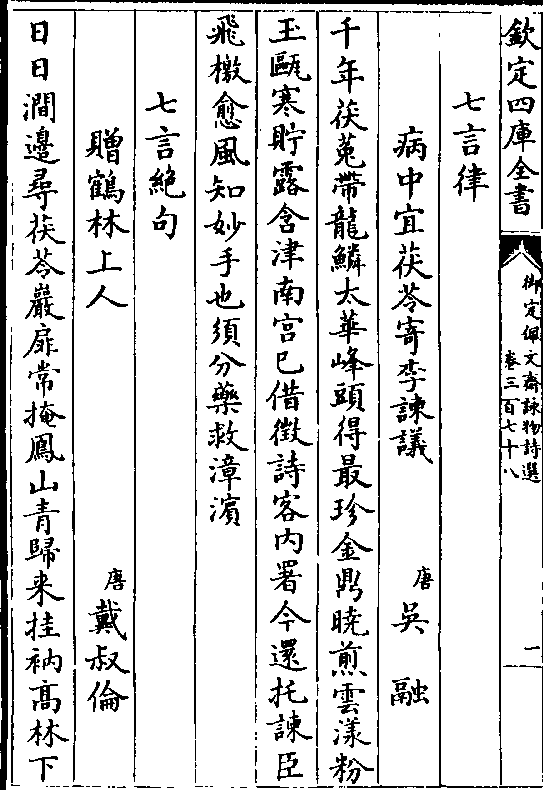 欽定四庫全書
御定佩文齋詠物詩選
卷三百七十八
一
七言律
病中宜茯苓寄李諫議
唐吳融
千年茯菟帶龍鱗太華峰頭得最珍金鼎曉煎雲漾粉
玉甌寒貯露含津南宮已借徵詩客內署今還托諫臣
飛檄愈風知妙手也須分藥救漳濱
七言絶句
贈鶴林上人
唐戴叔倫
日日澗邊尋茯苓巖扉常掩鳳山青歸来挂衲髙林下